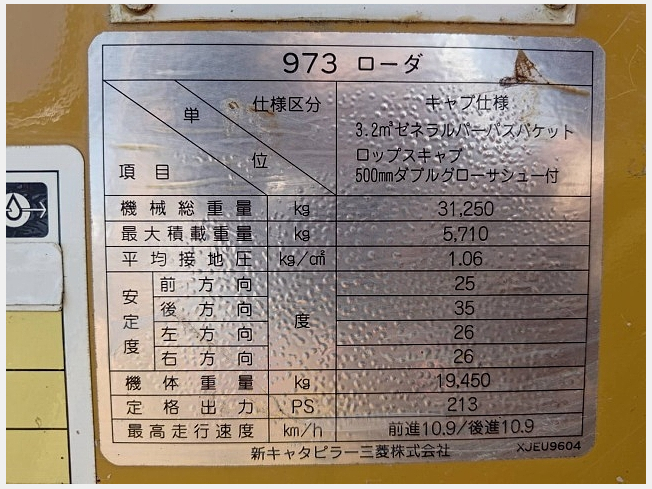 973 ローダ
単位 仕様区分
項目
キャブ仕様
3.2㎥ゼネラルパーパスバケット
ロップスキャブ
500mmダブルグローサシュー付
機械総重量 kg 31,250
最大積載重量 kg 5,710
平均接地圧 kg/c㎡ 1.06
安定度 度
前方向 25
後方向 35
左方向 26
右方向 26
機体重量 kg 19,450
定格出力 PS 213
最高走行速度 km/h 前進10.9/後進10.9
新キャタピラー三菱株式会社 XJEU9604